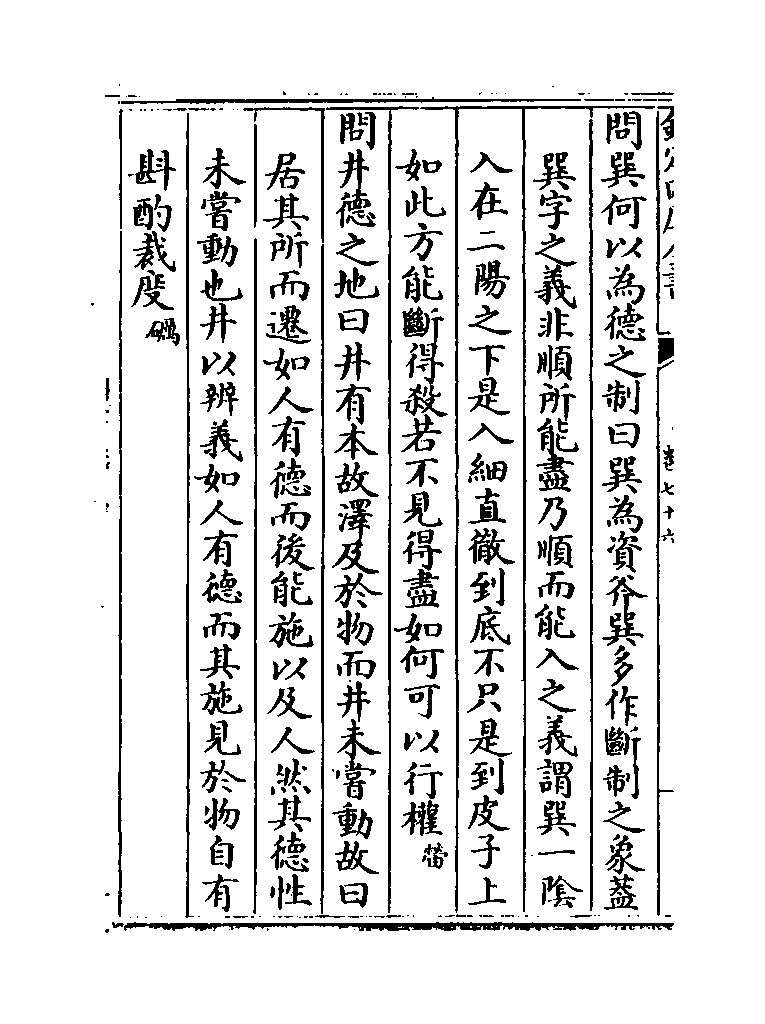 問巽何以為德之制曰巽為資斧巽多作斷制之象葢
巽字之義非順所能盡乃順而能入之義謂巽一隂
入在二陽之下是入細直徹到底不只是到皮子上
如此方能斷得殺若不見得盡如何可以行權㽦
問井德之地曰井有本故澤及於物而井未嘗動故曰
居其所而遷如人有德而後能施以及人然其德性
未嘗動也井以辨義如人有德而其施見於物自有
斟酌裁度礪
卷七十六